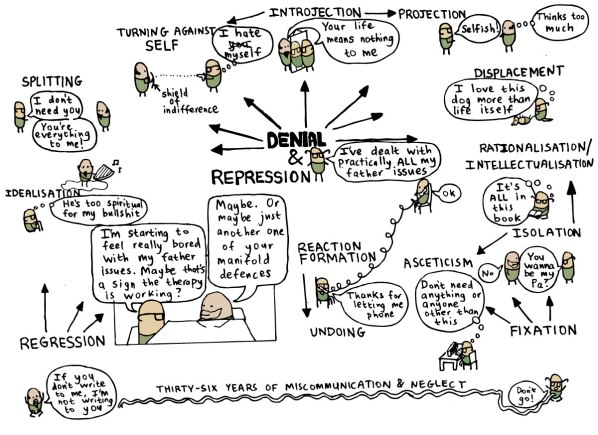 INTROJECTION
PROJECTION
TURNING AGAINST
SELF
I hate
you
myself
Your life
means nothing
to me
Selfish!
Thinks too
much
shield
of
indifference
SPLITTING
I don't
need you
You're
everything
to me!
DISPLACEMENT
I love this
dog more than
life itself
DENIAL
&
REPRESSION
I've dealt with
practically ALL my
father issues
RATIONALISATION/
INTELLECTUALISATION
It's
ALL in
this
book
IDEALISATION
He's too spiritual
for my bullshit
OK
I'm starting to
feel really bored
with my father
issues. Maybe that's
a sign the therapy
is working?
Maybe. Or
maybe just
another one
of your
manifold
defences
REACTION
FORMATION
Thanks for
letting me
phone
UNDOING
ISOLATION
ASCETICISM
Don't need
anything or
anyone
other than
this
No
You
wanna
be my
Pa?
FIXATION
REGRESSION
If you
don't write
to me, I'm
not writing
to you
THIRTY-SIX YEARS OF MISCOMMUNICATION & NEGLECT
Don't
go!